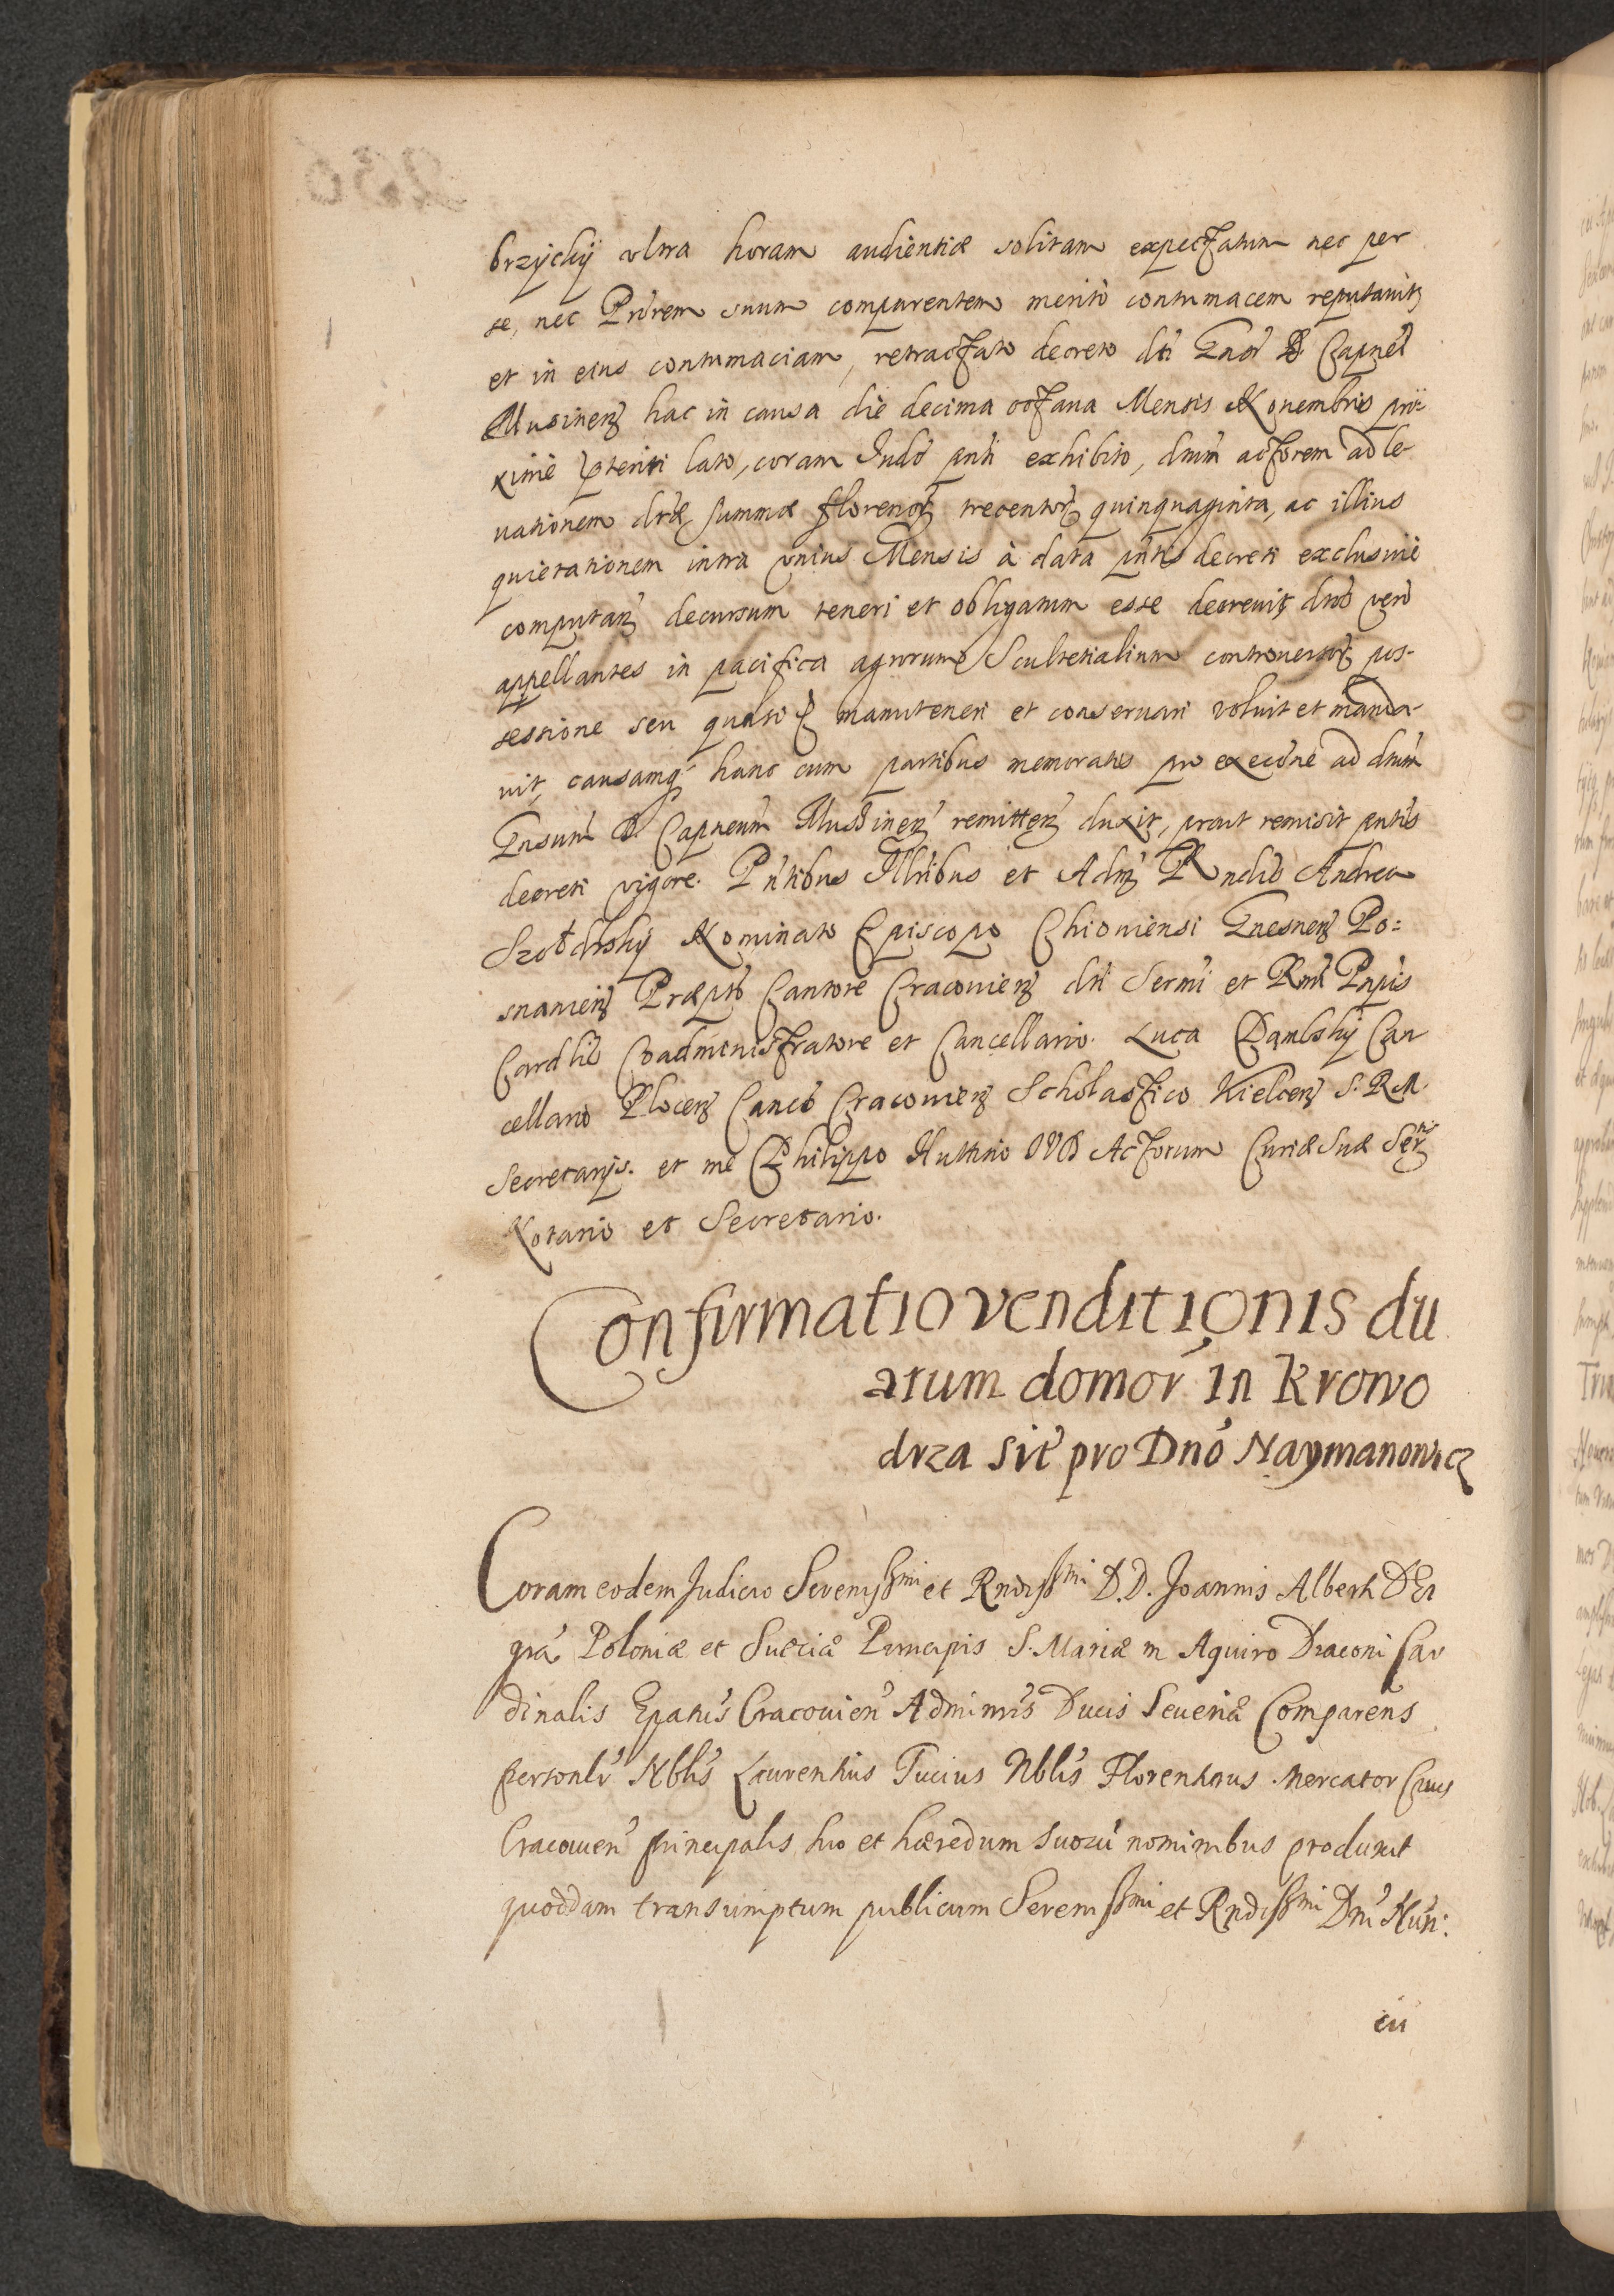 brzyckij vltra horam audientiæ solitam expectatum nec per
se, nec Prŏrem suum comparentem meritò contumacem reputauit,
et in eius contumaciam, retractato decreto dti Gnŏs D Capnei
Musinen̄ hac in causa die decima octaua Mensis Nouembris pro-
ximè pteriti lato, coram Judo pnti exhibito, dnum actorem ad le-
uationem dtæ summæ florenor trecentor quinquaginta, ac illius
quietationem intra vnius Mensis à data pntis decreti exclusiuè
computan decursum teneri et obligatum esse decreuit, dtos verò
appellantes in pacifica agrorum Scultetialium controuersor pos-
sessione seu quasi manuteneri et conseruari voluit et manda-
uit, causamq hanc cum partibus memoratis pro execŏne ad dnum
Gnsum D. Capneum Mussinen remitten duxit, prout remisit pntis
decreti vigore. Pntibus Illribus et Adm Rndis Andrea
Szołdrskij Nominato Episcopo Chiouiensi Gnesnen Po:
snanien Præpto Cantore Cracouien dti Sermi et Rmi Pnpis
Cardlis Coadministratore et Cancellario. Luca Dąmbskij Can
cellario Plocen Canco Cracouien Scholastico Kielcen S. R M.
Secretarijs. et me Philippo Huttino JVD Actorum Curiæ Suæ Sertis
Notario et Secretario.
Confirmatio venditionis du
arum domor in Krowo
drza sit pro Dno Naymanowicz
Coram eodem Judicio Sereniſſmi et Rndiſſmi D.D. Joannis Alberti DEi
gra Poloniæ et Sueciæ Principis S. Mariæ in Aquiro Diaconi Car
dinalis Epatus Cracouien Adminris Ducis Seueriæ Comparens
personlr Nblis Laurentius Tucius Nblis Florentinus Mercator Ciuis
Cracouien principalis suo et hæredum suoru nominibus produxit
quoddam transumptum publicum Sereniſſmi et Rndiſſmi Dni Nun:
cu